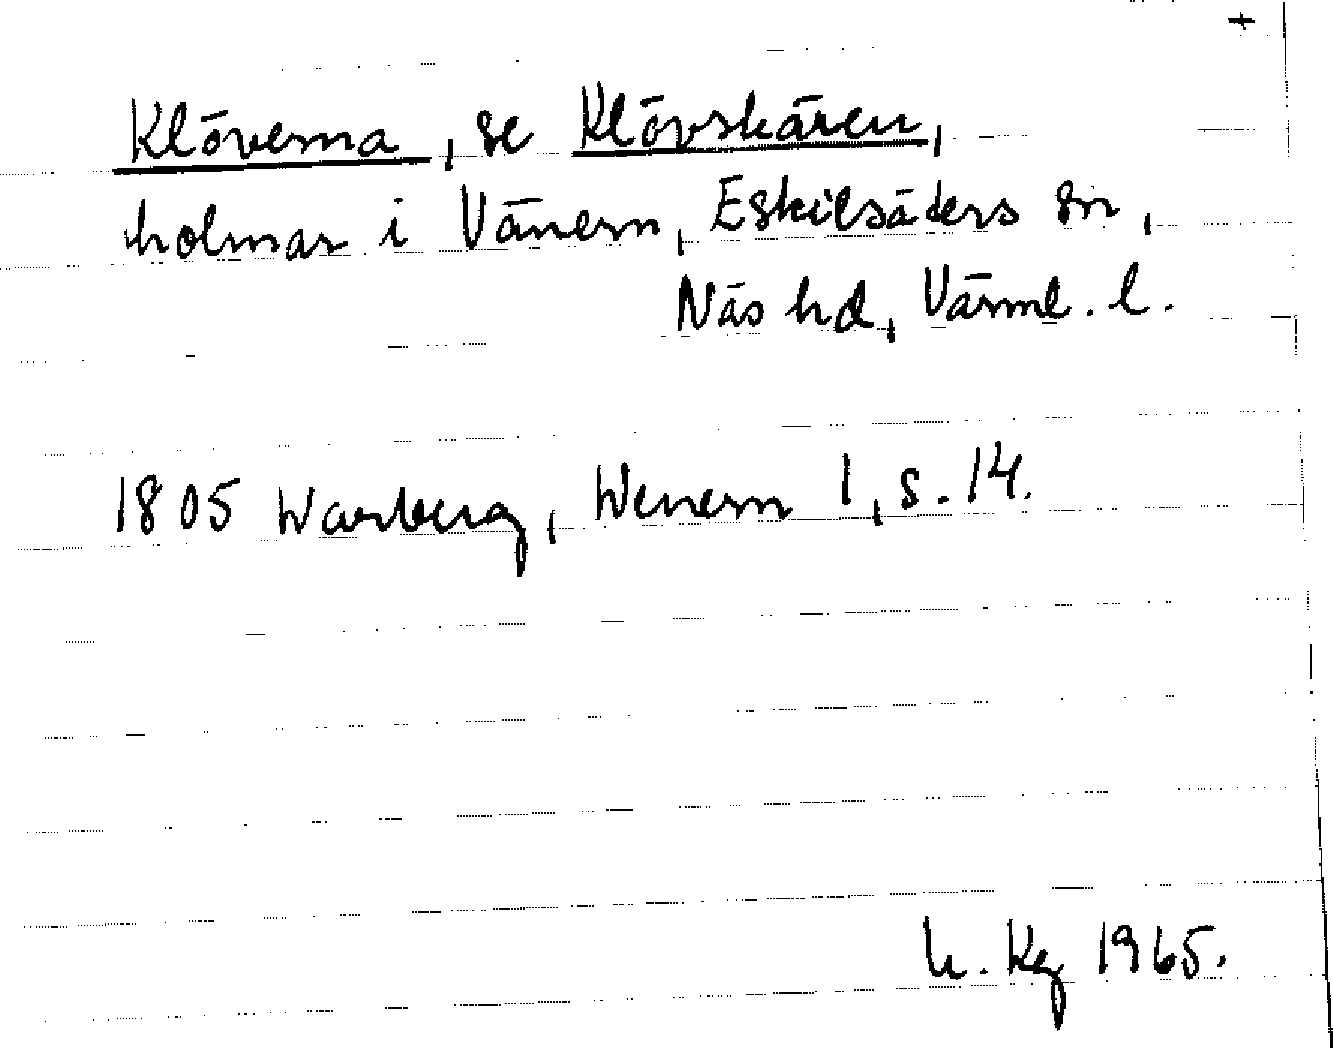 +
Klöverna, se Klövskären,
holmar i Vänern, Eskilsäters sn,
Näs hd, Värml. l.
1805 Warberg, Wenern 1, s. 14.
Kg 1965.